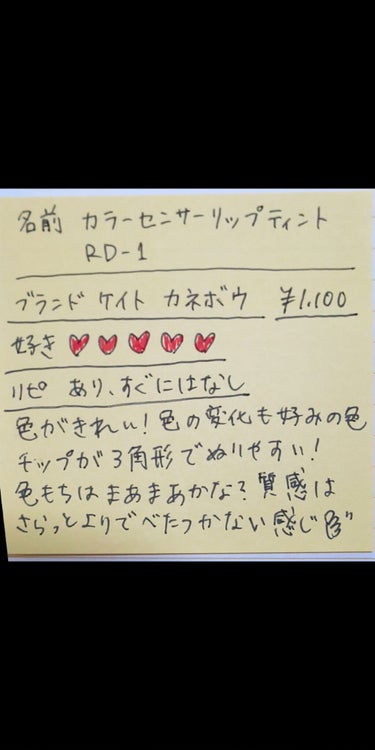 名前 カラーセンサーリップティント
RD-1
ブランド ケイト カネボウ ¥1.100
好き
リピ あり、すぐにはなし
色がきれい!色の変化も好みの色
チップが3角形でぬりやすい!
色もちはまあまあかな?質感は
さらっとよりでべたつかない感じ